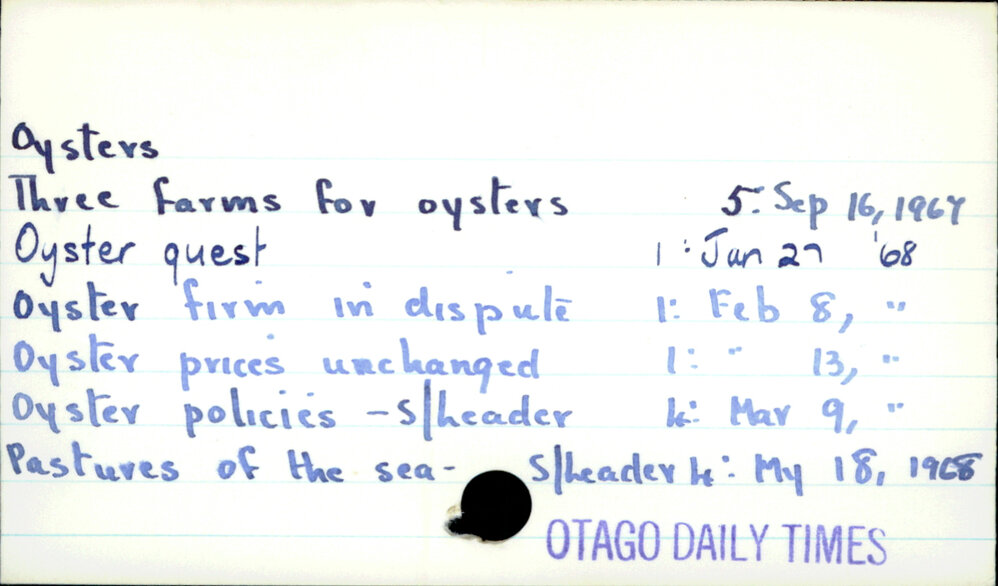 Oysters
Three farms for oysters 5: Sep 16, 1967
Oyster quest 1: Jan 27 '68
Oyster firm in dispute 1: Feb 8, "
Oyster prices unchanged 1: " 13, "
Oyster policies - S/header 4: Mar 9, "
Pastures of the sea - S/header 4: My 18, 1968
OTAGO DAILY TIMES